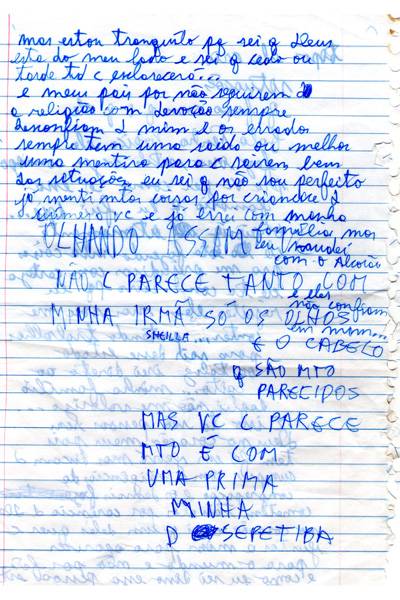 mas estou tranquilo pq sei q Deus
esta do meu lado e sei q cedo ou
tarde td c esclarecerá...
e meus pais por não seguirem
a religião com devoção sempre
desconfiam d mim e os errados
sempre tem uma saida ou melhor
uma mentira para c sairem bem
das situações, eu sei q não sou perfeito
já menti mtas coisas por criancice d
ciumera vc e já errei com minha
família mas
eu mudei
com o Alcorão
e eles
não confiam
em mim...
OLHANDO ASSIM
NÃO C PARECE TANTO COM
MINHA IRMÃ SÓ OS OLHOS
SHEILLA... E O CABELO
q SÃO MTO
PARECIDOS
MAS VC C PARECE
MTO É COM
UMA PRIMA
MINHA
D SEPETIBA